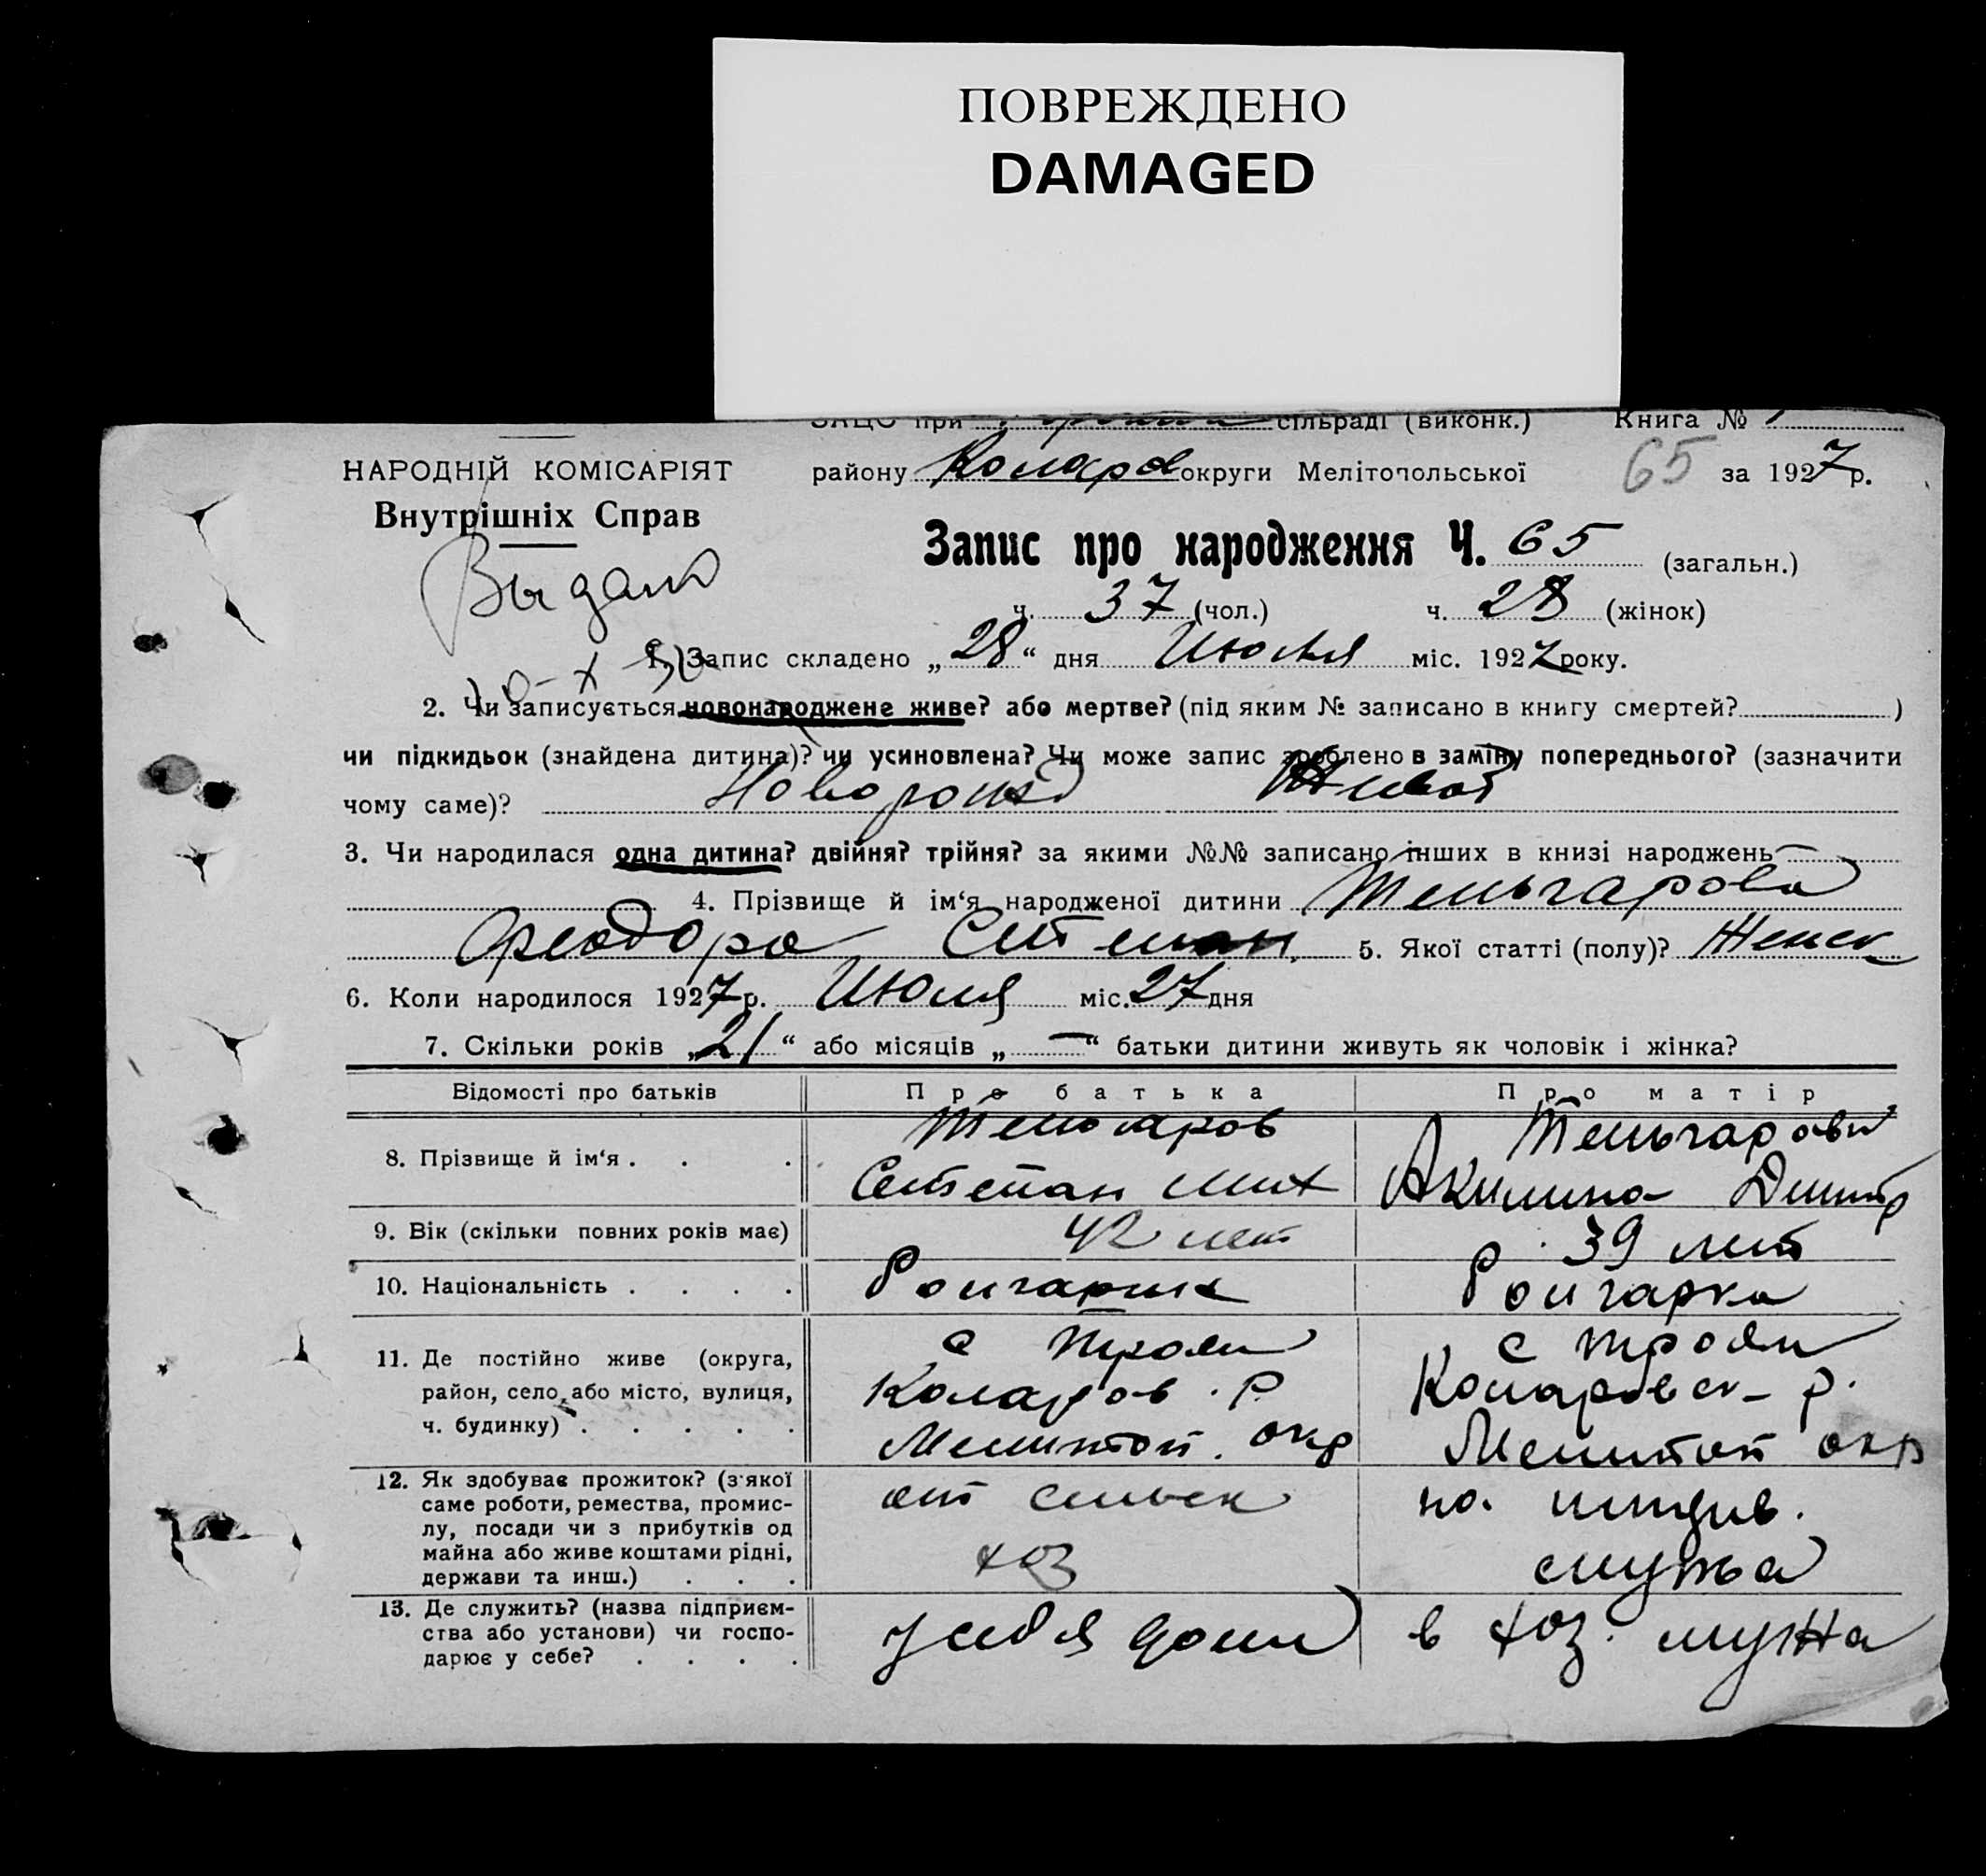 ПОВРЕЖДЕНО
DAMAGED
ЗАЦС при сільраді (виконк.) Книга №
НАРОДНІЙ КОМІСАРІЯТ району Коларов округи Мелітопольської 65 за 1927 р.
Внутрішніх Справ
Запис про народження Ч. 65 (загальн.)
Выдано
ч. 37 (чол.) ч. 28 (жінок)
1. Запис складено „28“ дня Июля міс. 1927 року.
2. Чи записується новонароджене живе? або мертве? (під яким № записано в книгу смертей? )
чи підкидьок (знайдена дитина)? чи усиновлена? Чи може запис зроблено в заміну попереднього? (зазначити
чому саме)? Новорожд Живой
3. Чи народилася одна дитина? двійня? трійня? за якими №№ записано інших в книзі народжень —
4. Прізвище й ім‘я народженої дитини Тельчарова
Феодора Степан. 5. Якої статті (полу)? Женск
6. Коли народилося 1927 р. Июля міс. 27 дня
7. Скільки років „21“ або місяців „—“ батьки дитини живуть як чоловік і жінка?
Відомості про батьків Про батька Про матір
8. Прізвище й ім‘я . . . Тельчаров Тельчарова
Степан Мих Акилина Димитр
9. Вік (скільки повних років має) 42 лет 39 лет
10. Національність . . . . Болгарин Болгарка
11. Де постійно живе (округа, с Трояни с Трояни
район, село, або місто, вулиця, Коларов. р Коларовск- р.
ч. будинку) . . . . . Мелитоп. окр Мелитоп окр
12. Як здобуває прожиток? (з якої от сельск на иждив.
саме роботи, ремества, промис-
лу, посади чи з прибутків од
майна або живе коштами рідні, хоз мужа
держави та инш.) . . .
13. Де служить? (назва підприєм- у себя дома в хоз. мужа
ства або установи) чи госпо-
дарює у себе? . . . .